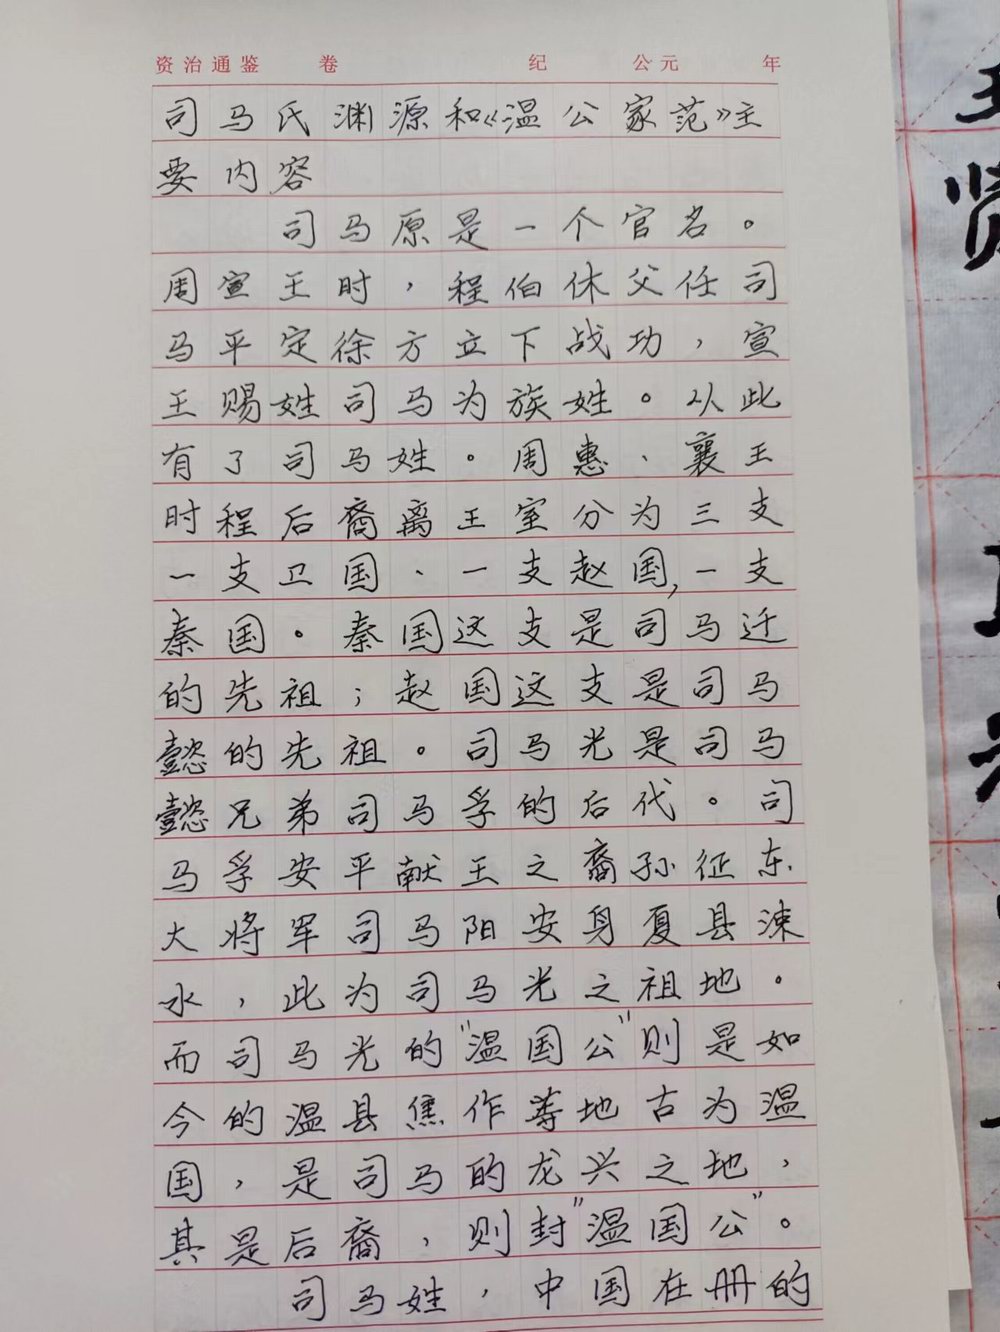 资治通鉴 卷 纪 公元 年
司马氏渊源和《温公家范》主
要内容
司马原是一个官名。
周宣王时，程伯休父任司
马平定徐方立下战功，宣
王赐姓司马为族姓。从此
有了司马姓。周惠、襄王
时程后裔离王室分为三支
一支卫国、一支赵国，一支
秦国。秦国这支是司马迁
的先祖；赵国这支是司马
懿的先祖。司马光是司马
懿兄弟司马孚的后代。司
马孚安平献王之裔孙征东
大将军司马阳安身夏县涑
水，此为司马光之祖地。
而司马光的"温国公"则是如
今的温县焦作等地古为温
国，是司马的龙兴之地，
其是后裔，则封"温国公"。
司马姓，中国在册的
贤